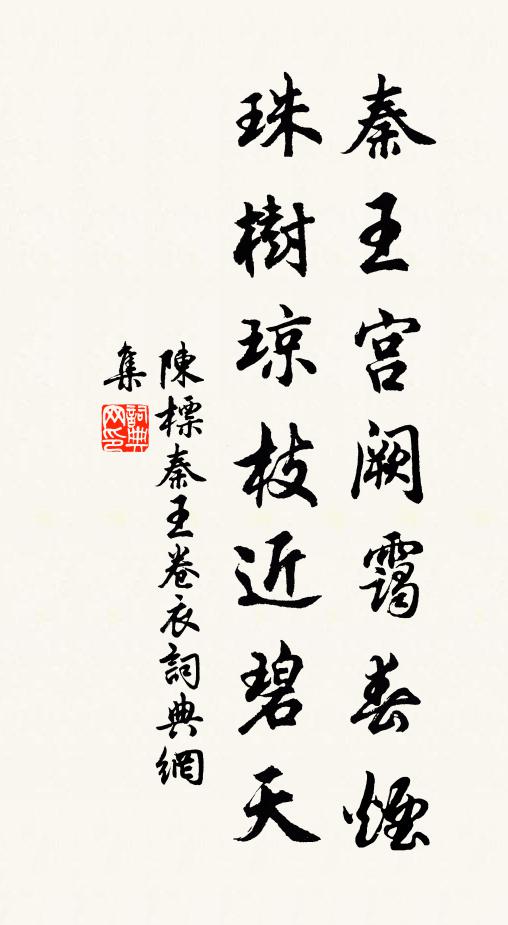 秦王宫阙霭春煙
珠樹琼枝近碧天
陳標秦王卷衣詞典網
集
詞典網印